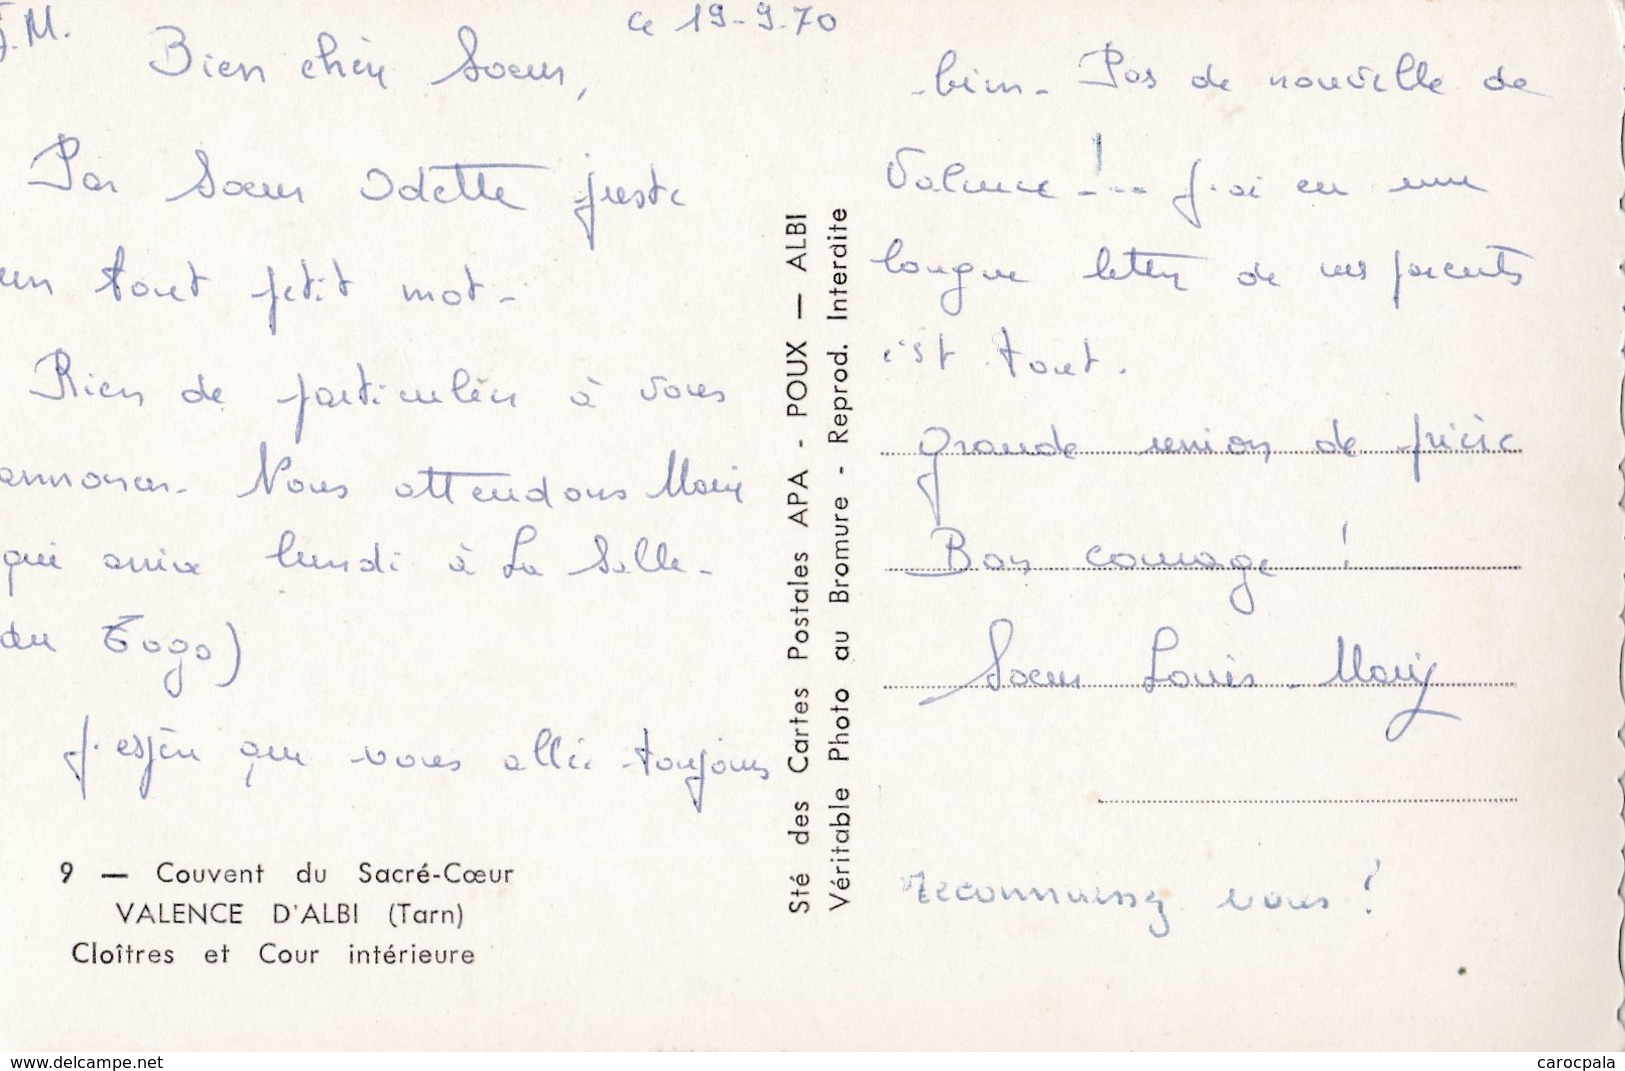 J.M.
ce 19-9-70
Bien chère Soeur,
Par Soeur Odette juste
un tout petit mot -
Rien de particulier à vous
annoncer. Nous attendons Marie
qui arrive lundi à La Salle -
du Togo)
J'espère que vous allée toujours
9 — Couvent du Sacré-Cœur
VALENCE D'ALBI (Tarn)
Cloîtres et Cour intérieure
Sté des Cartes Postales APA - POUX — ALBI
Véritable Photo au Bromure - Reprod. Interdite
-bien - Pas de nouvelle de
Valence !... J'ai eu une
longue lettre de vos parents
c'est tout.
grande union de prière
Bon courage !
Soeur Louis-Marie
reconnaissez vous ?
www.delcampe.net
carocpala